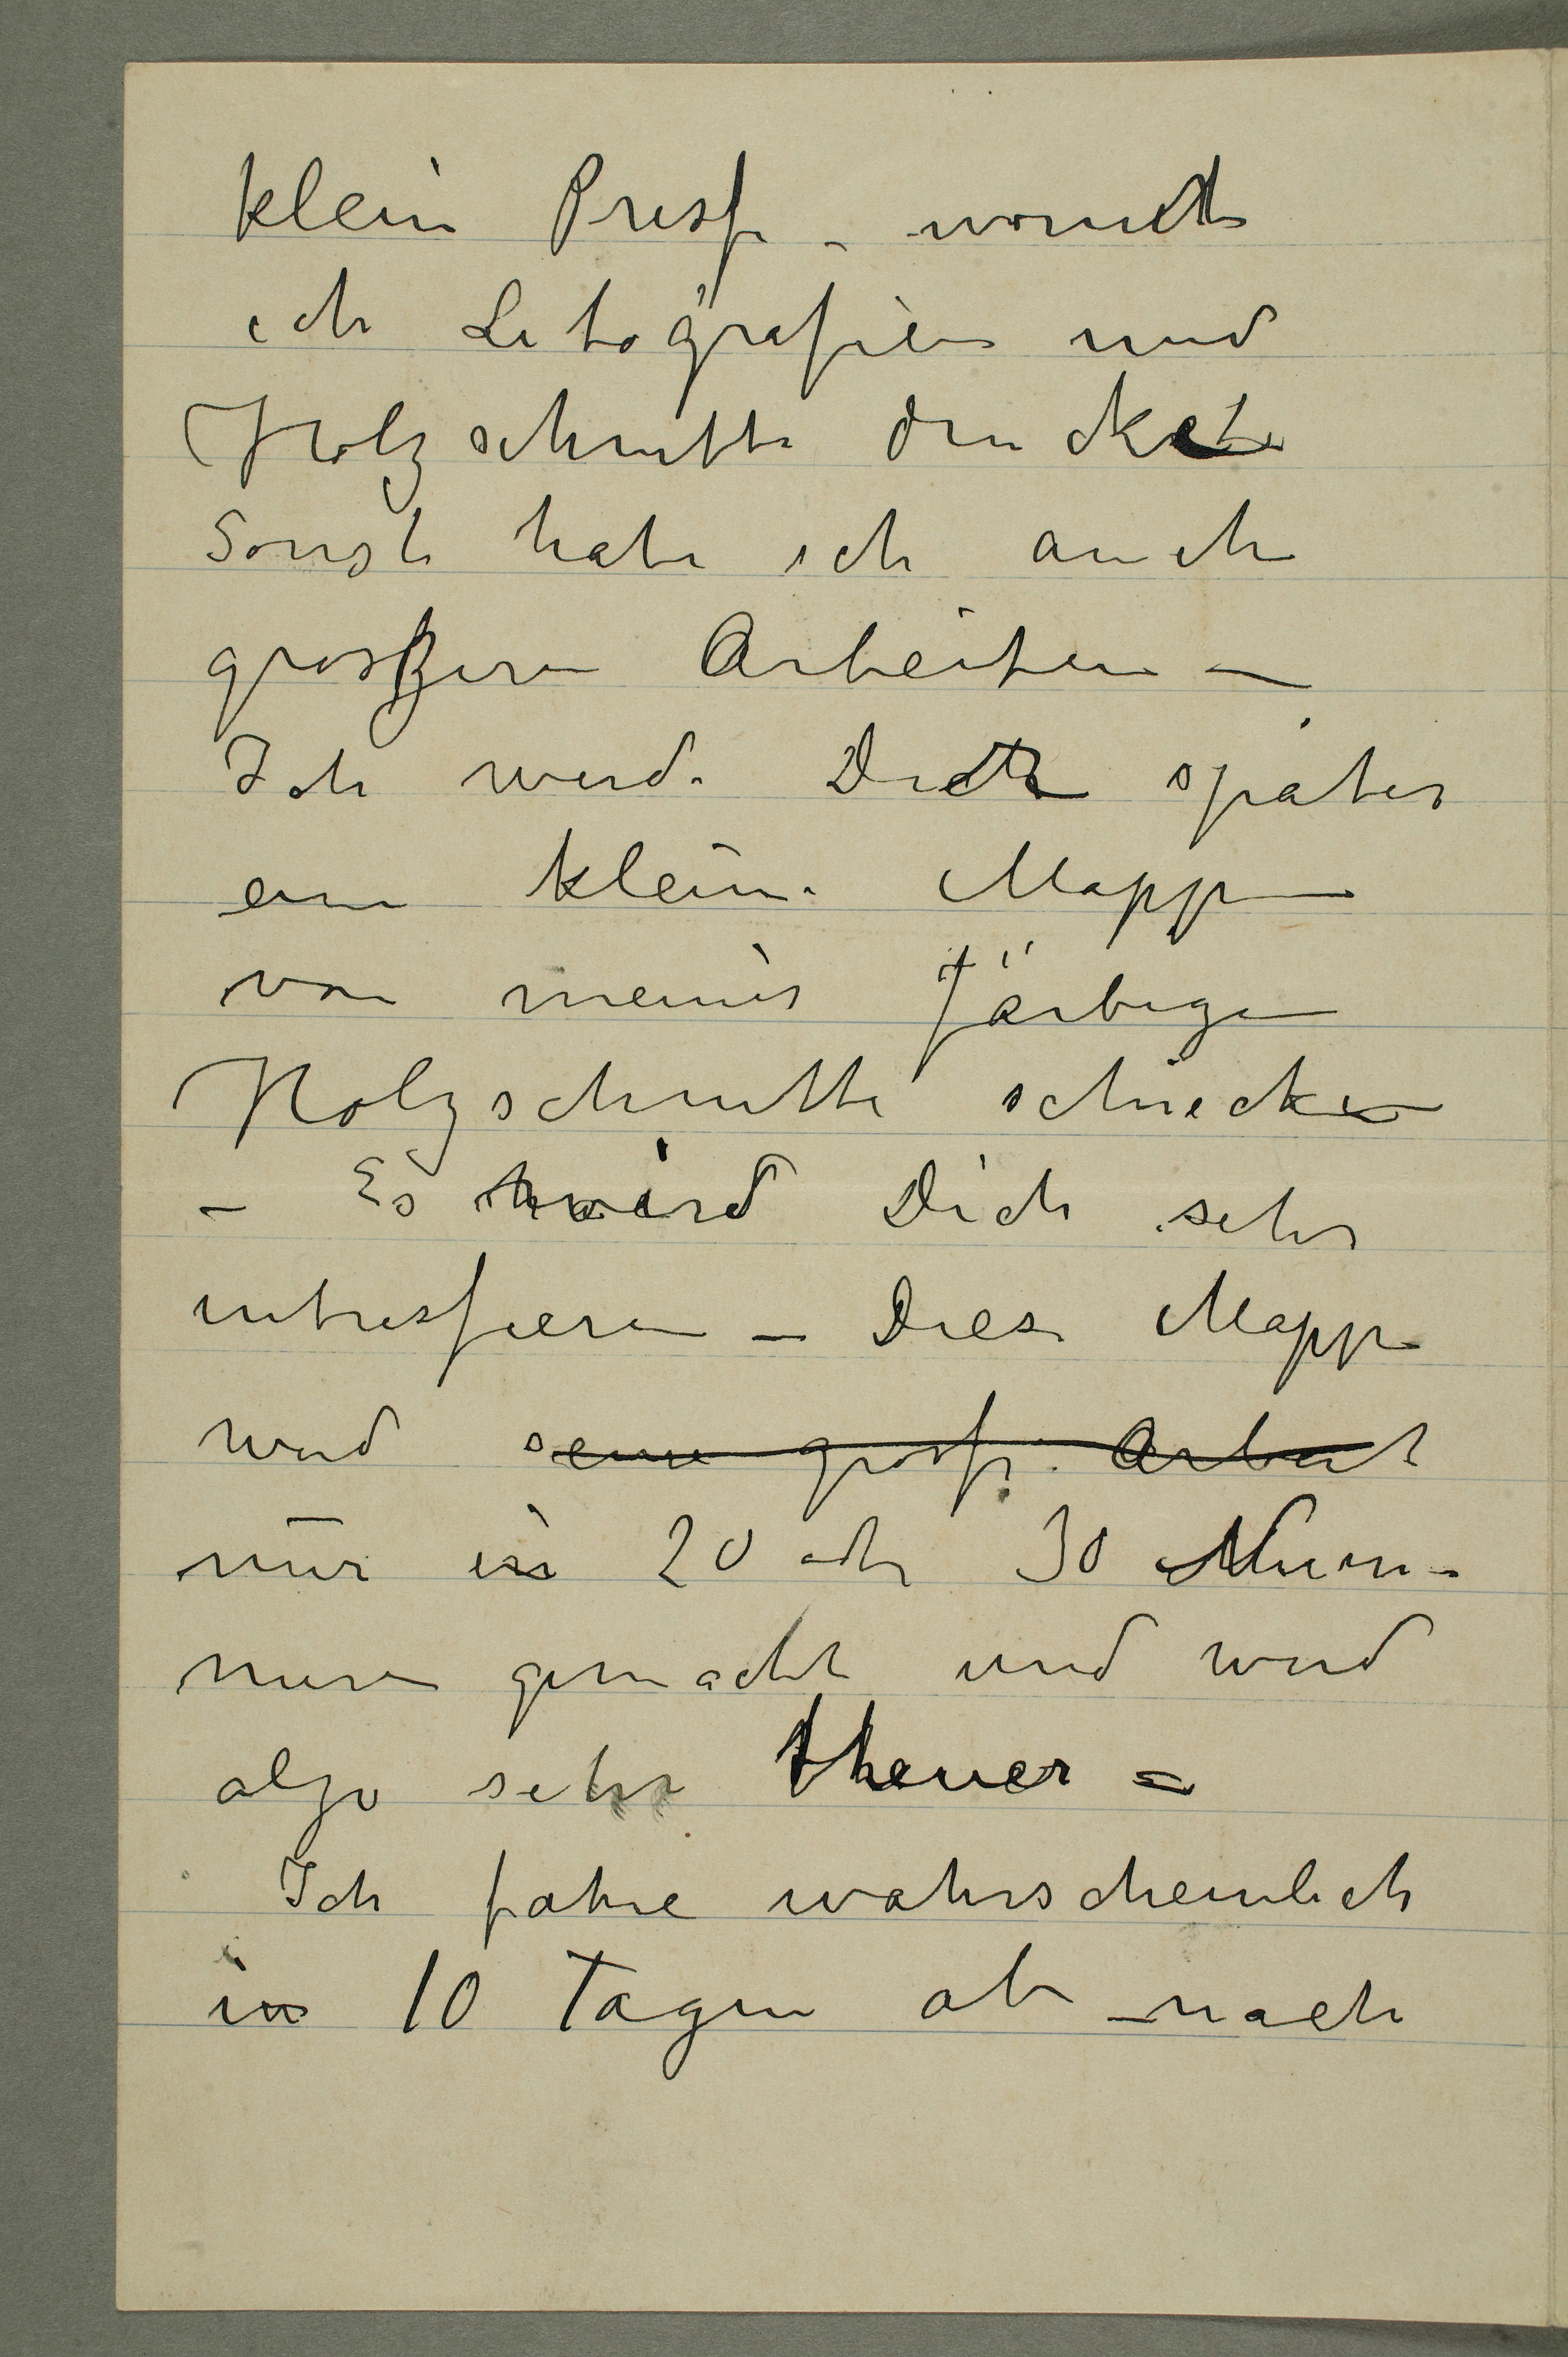 klein Presse – womit
ich Litografien und
Holzschnitte druckte
Sonst habe ich auch
groszere Arbeiten –
Ich werde Dir später
eine kleine Mappe
von meiner färbigen
Holzschnitte schicken
– Es wird Dich sehr
intressieren – Diese Mappe
wird seine grosse Arbeit
nur in 20 oder 30 Num-
mern gemacht und wird
also sehr theuer =
Ich fahre wahrscheinlich
in 10 Tagen ab nach